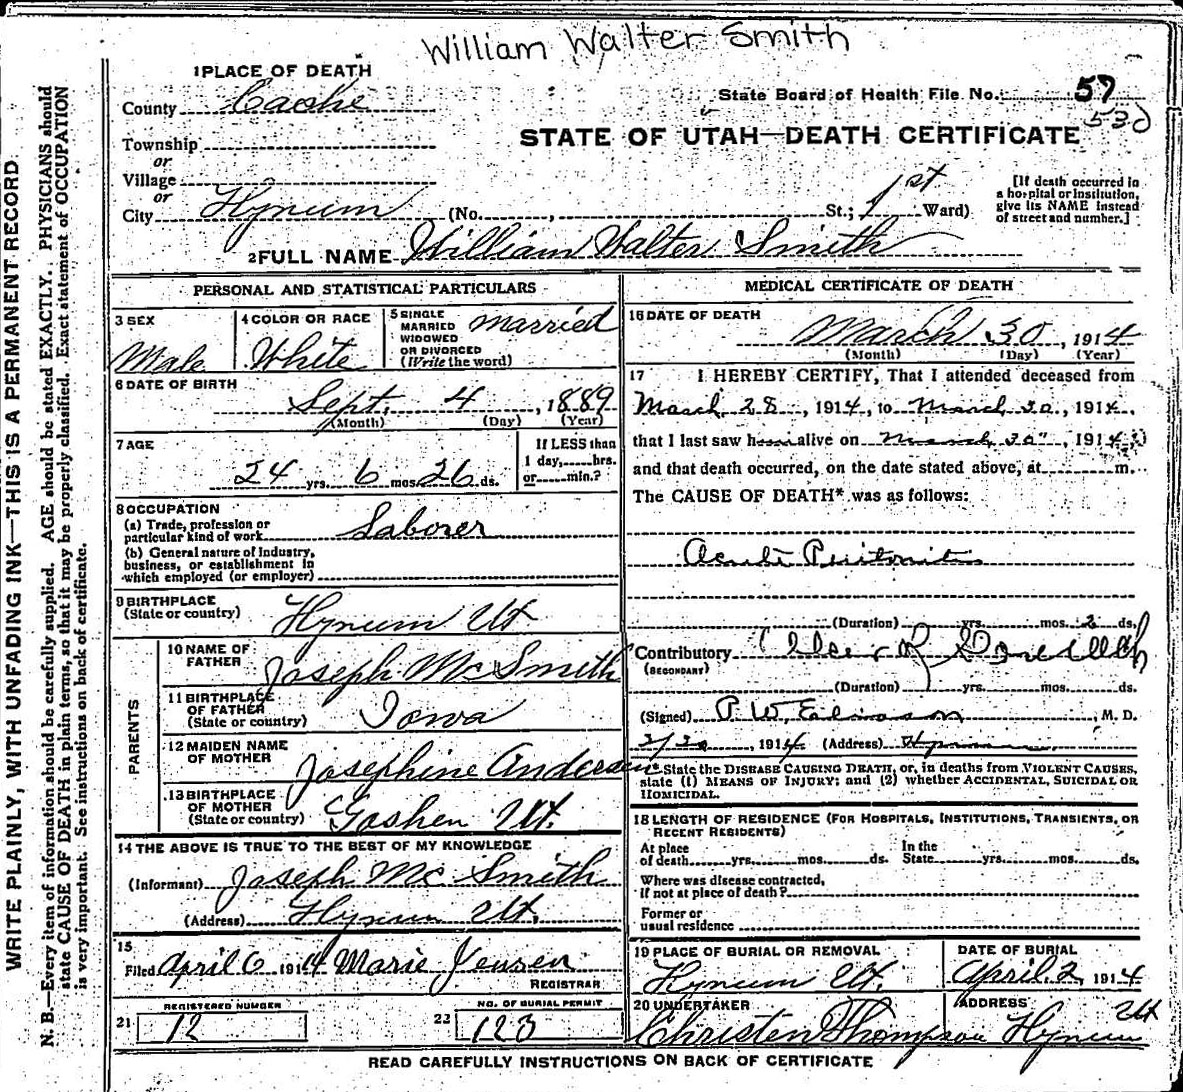 William Walter Smith
1 PLACE OF DEATH
County Cache
State Board of Health File No. 57
530
STATE OF UTAH—DEATH CERTIFICATE
Township
or
Village
or
City Hyrum (No. , St.; 1st Ward)
[If death occurred in a hospital or institution, give its NAME instead of street and number.]
2 FULL NAME William Walter Smith
PERSONAL AND STATISTICAL PARTICULARS
3 SEX
Male
4 COLOR OR RACE
White
5 SINGLE MARRIED WIDOWED OR DIVORCED (Write the word)
Married
6 DATE OF BIRTH
Sept. 4, 1889
(Month) (Day) (Year)
7 AGE
24 yrs. 6 mos. 26 ds.
If LESS than 1 day, hrs. or min.?
8 OCCUPATION
(a) Trade, profession or particular kind of work Laborer
(b) General nature of industry, business, or establishment in which employed (or employer)
9 BIRTHPLACE
(State or country) Hyrum Ut
PARENTS
10 NAME OF FATHER Joseph Mc Smith
11 BIRTHPLACE OF FATHER (State or country) Iowa
12 MAIDEN NAME OF MOTHER Josephine Andersen
13 BIRTHPLACE OF MOTHER (State or country) Goshen Ut.
14 THE ABOVE IS TRUE TO THE BEST OF MY KNOWLEDGE
(Informant) Joseph Mc Smith
(Address) Hyrum Ut.
15
Filed April 6 1914 Marie Jensen
REGISTRAR
REGISTERED NUMBER
21 12
NO. OF BURIAL PERMIT
22 123
MEDICAL CERTIFICATE OF DEATH
16 DATE OF DEATH
March 30, 1914
(Month) (Day) (Year)
17 I HEREBY CERTIFY, That I attended deceased from
March 28, 1914, to March 30, 1914,
that I last saw him alive on March 30", 1914,
and that death occurred, on the date stated above, at m.
The CAUSE OF DEATH* was as follows:
Acute Peritonitis
(Duration) yrs. mos. 2 ds.
Contributory
(SECONDARY)
(Duration) yrs. mos. ds.
(Signed) P. W. Eliason, M. D.
3/30, 1914 (Address) Hyrum
* State the DISEASE CAUSING DEATH, or, in deaths from VIOLENT CAUSES,
state (1) MEANS OF INJURY; and (2) whether ACCIDENTAL, SUICIDAL OR
HOMICIDAL.
18 LENGTH OF RESIDENCE (FOR HOSPITALS, INSTITUTIONS, TRANSIENTS, OR
RECENT RESIDENTS)
At place of death yrs. mos. ds. In the State yrs. mos. ds.
Where was disease contracted,
if not at place of death?
Former or
usual residence
19 PLACE OF BURIAL OR REMOVAL
Hyrum Ut.
DATE OF BURIAL
April 2, 1914
20 UNDERTAKER
Christen Thompson
ADDRESS
Hyrum Ut
READ CAREFULLY INSTRUCTIONS ON BACK OF CERTIFICATE
WRITE PLAINLY, WITH UNFADING INK—THIS IS A PERMANENT RECORD
N. B.—Every item of information should be carefully supplied. AGE should be stated EXACTLY. PHYSICIANS should
state CAUSE OF DEATH in plain terms, so that it may be properly classified. Exact statement of OCCUPATION
is very important. See instructions on back of certificate.